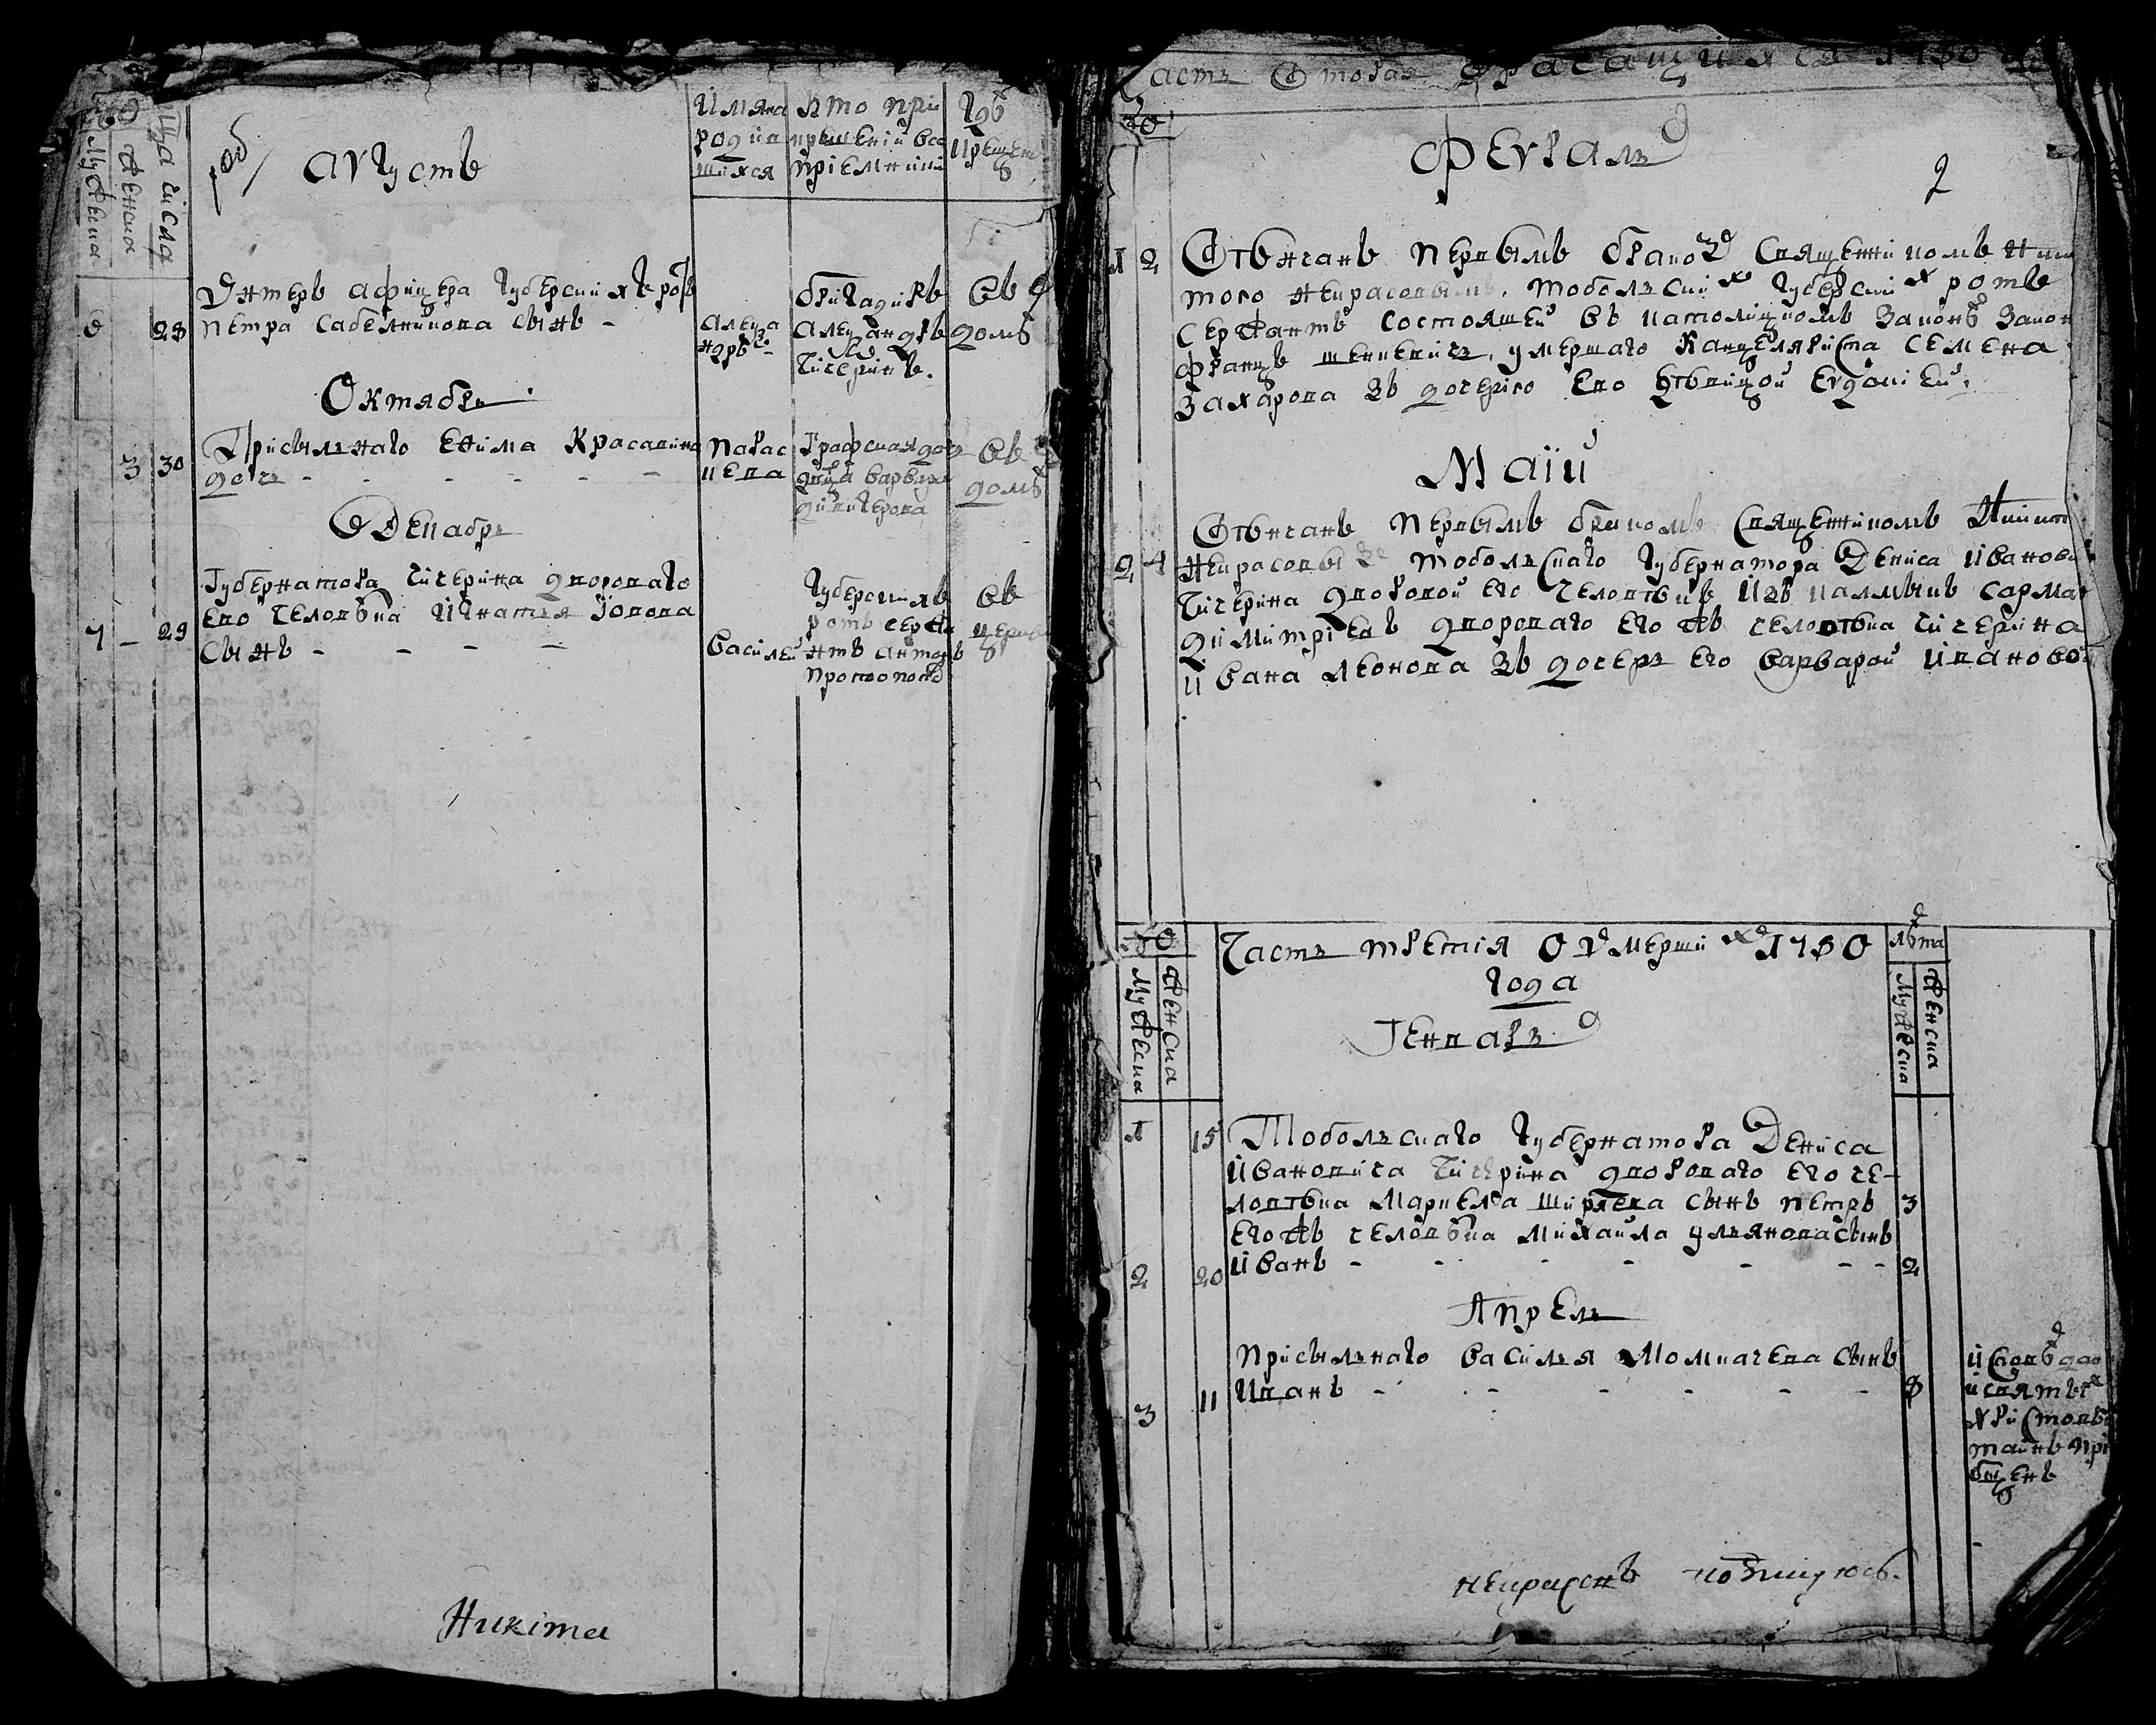 Числа
Женска
Мужеска
Августъ
Имяна
родив
шихся
Кто при
крещеніи вос
пріемники
Гдѣ
крещен
Унтеръ афицера губерскихъ ротъ
6 28 Петра Сабелникова сынъ -
Алекса
ндръ
бригадиръ
Александръ
Чичеринъ.
въ
домѣ
Октябрь
Присыльнаго Екима Красавина
3 30 дочь - - - - -
Парас
кева
Графская доч
девица Варвара
Дивиерова
въ
домѣ
Декабрь
Губернатора Чичерина двороваго
ево человѣка Игнатья Попова
7 - 29 сынъ - - - -
Василей
губерскихъ
ротъ сержа
нтъ Антонъ
Протопопов
въ
церкви
Никіта
Часть вторая о брачащихся 1780
Февраль
2
1 2 Отвѣнчанъ первымъ бракомъ священникомъ Ники
тою Некрасовымъ, тоболскихъ губерскихъ ротъ
сержантъ состоящей въ католицкомъ законѣ
Францъ умершаго канцеляриста Семена
Захарова зъ дочерію ево дѣвицой Евдокіей,
Маій
Отвѣнчанъ первымъ бракомъ священникомъ Никит
2 4 Некрасовымъ тобольскаго губернатора Дениса Иванови
Чичерина дворовой его человѣкъ изъ калмыкъ Сарма
Димитріевъ двороваго его жъ человѣка Чичерина
Ивана Леонова зъ дочерь его Варварой Ивановой
Часть третія о умершихъ 1780
года
лѣта
Мужеска
Женска
Мужеска
Женска
Генварь
1 15 Тобольскаго губернатора Дениса
Ивановича Чичерина двороваго его че-
ловѣка Маркела Ширяева сынъ Петръ 3
его жъ человѣка Михаила Ульянова сынъ
2 20 Иванъ - - - - - - - 2
Апрель
Присыльнаго Василья Молмачева сынъ
3 11 Иванъ - - - - - - 8
исповѣдан
и святыхъ
Христовы
таинъ прі
общенъ
Некрасовъ подпишуюсь.